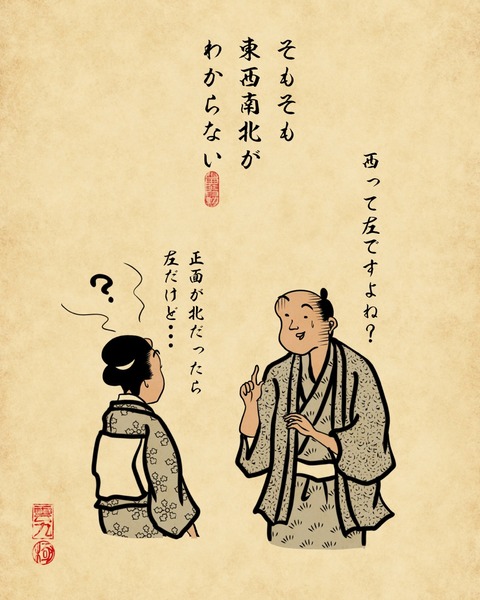 そもそも
東西南北が
わからない
西って左ですよね?
正面が北だったら
左だけど・・・
?